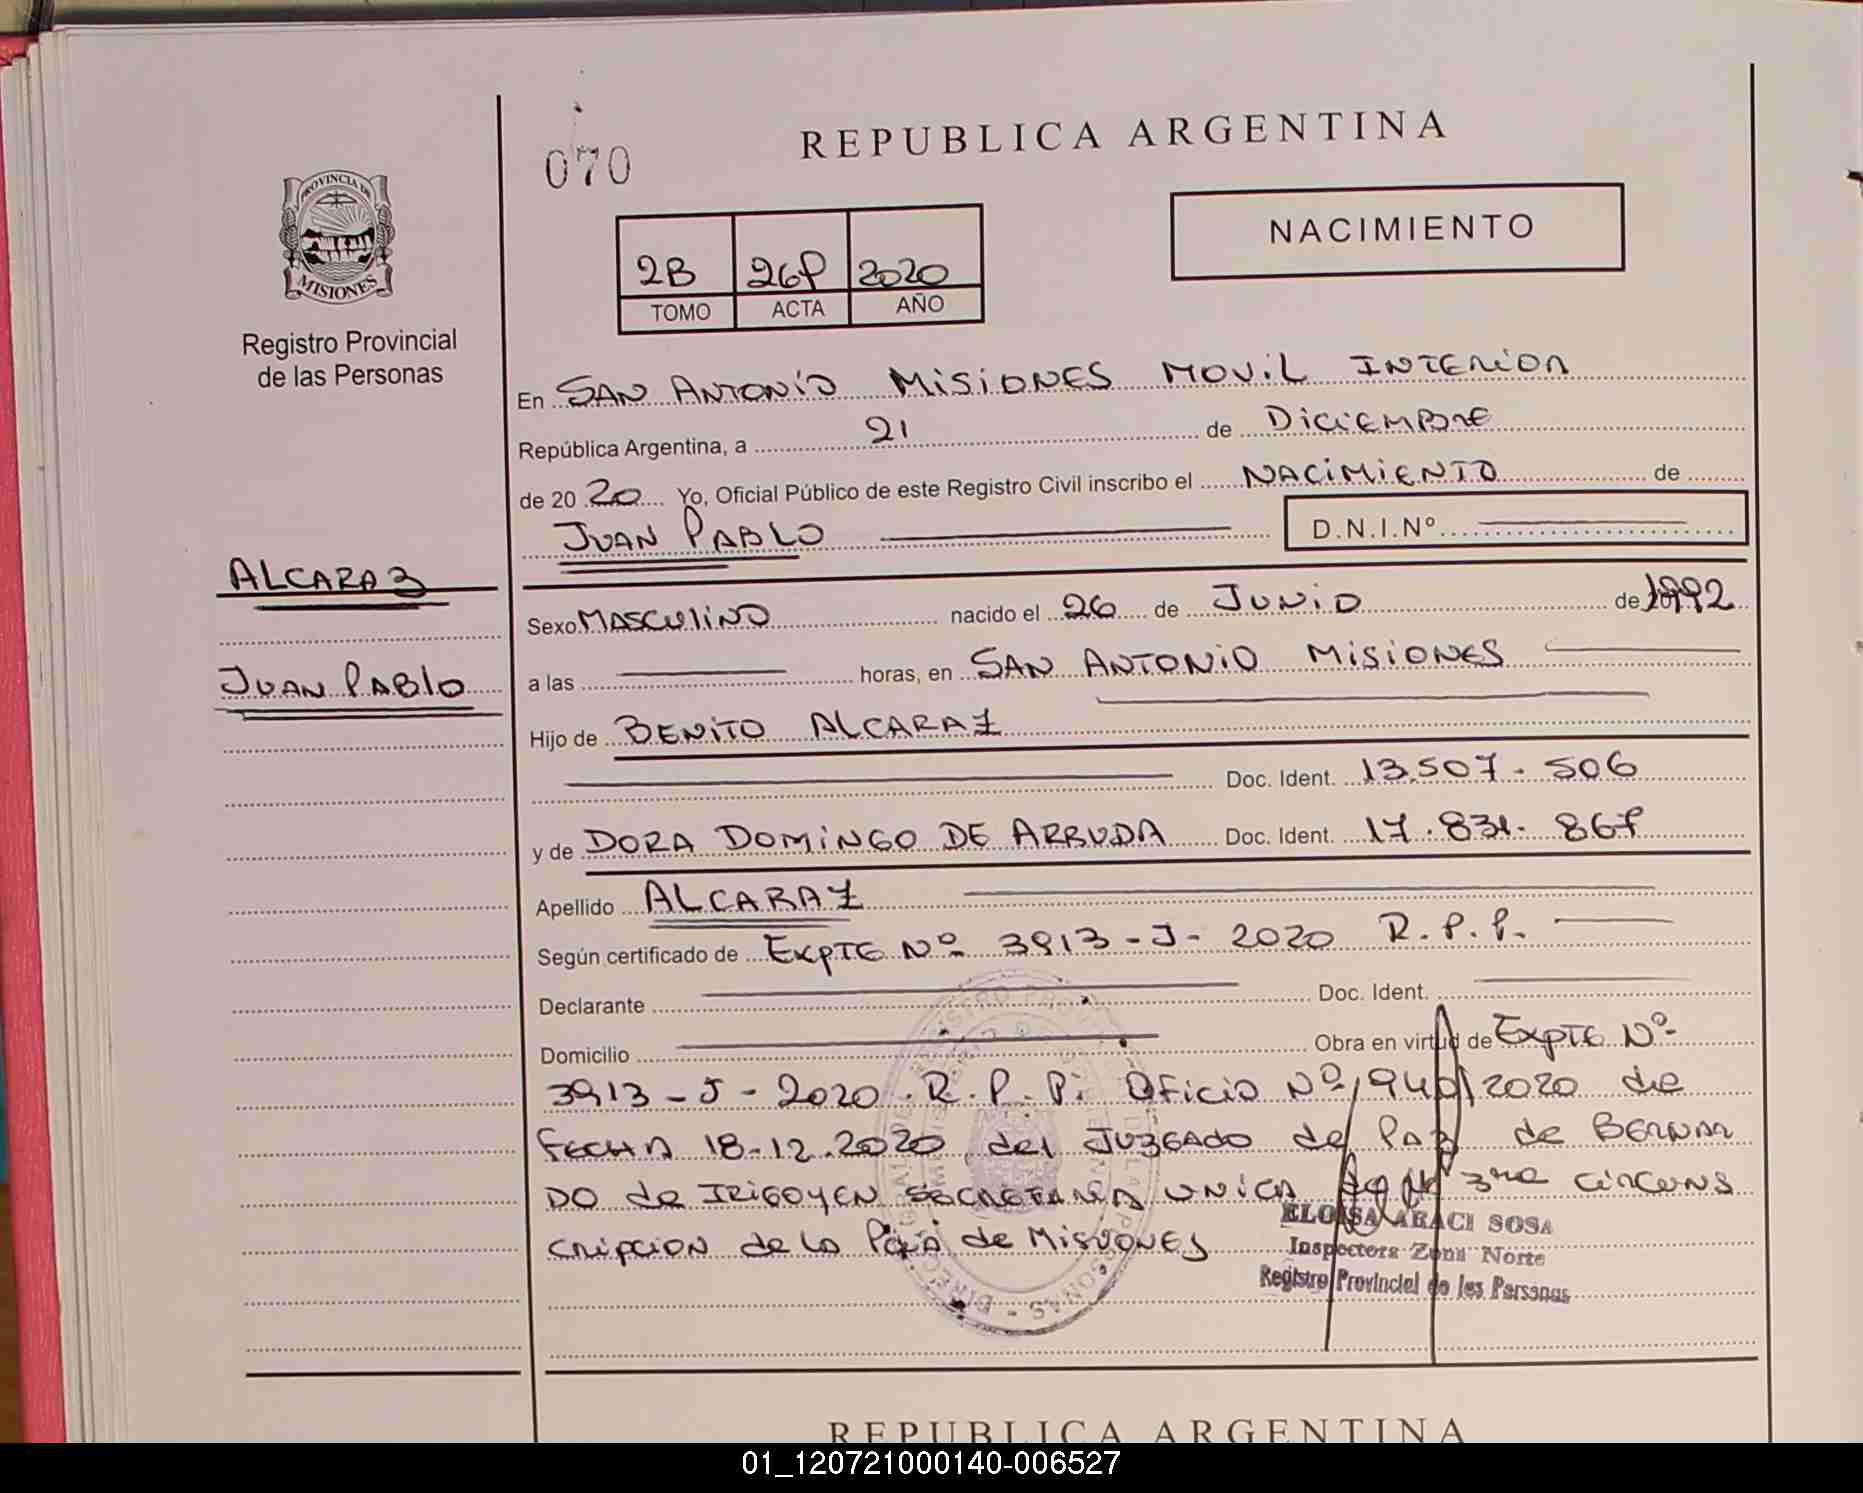 070
REPUBLICA ARGENTINA
NACIMIENTO
2B 269 2020
TOMO ACTA AÑO
PROVINCIA DE
MISIONES
Registro Provincial
de las Personas
En SAN ANTONIO MISIONES MOVIL INTERIOR
República Argentina, a 21 de DICIEMBRE
de 20 20 Yo, Oficial Público de este Registro Civil inscribo el NACIMIENTO de
JUAN PABLO D.N.I.Nº
ALCARAZ
JUAN PABLO
Sexo MASCULINO nacido el 26 de JUNIO de 1992
a las horas, en SAN ANTONIO MISIONES
Hijo de BENITO ALCARAZ
Doc. Ident. 13.507.506
y de DORA DOMINGO DE ARRUDA Doc. Ident. 17.831.869
Apellido ALCARAZ
Según certificado de EXPTE Nº 3913-J-2020 R.P.P.
Declarante Doc. Ident.
Domicilio Obra en virtud de EXPTE Nº
3913-J-2020.R.P.P. OFICIO Nº 940/2020 de
FECHA 18-12.2020 del JUZGADO de PAZ de BERNAR
DO de IRIGOYEN SECRETARIA UNICA 3ra CIRCUNS
CRIPCION de la de MISIONES
ELOISA ARACI SOSA
Inspectora Zona Norte
Registro Provincial de las Personas
REPUBLICA ARGENTINA
01_120721000140-006527